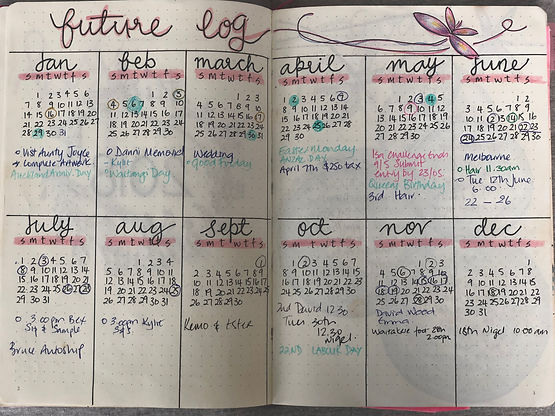 future log
Jan
s m t w t f s
1 2 3 4 5 6
7 8 9 10 11 12 13
14 15 16 17 18 19 20
21 22 23 24 25 26 27
28 29 30 31
Visit Aunty Joyce
Auckland Anniv. Day
feb
s m t w t f s
1 2 3
4 5 6 7 8 9 10
11 12 13 14 15 16 17
18 19 20 21 22 23 24
25 26 27 28
o Danni Memorial
- Kylie
Waitangi Day
march
s m t w t f s
1 2 3
4 5 6 7 8 9 10
11 12 13 14 15 16 17
18 19 20 21 22 23 24
25 26 27 28 29 30 31
Wedding
Good Friday
april
s m t w t f s
1 2 3 4 5 6 7
8 9 10 11 12 13 14
15 16 17 18 19 20 21
22 23 24 25 26 27 28
29 30
Easter Monday
ANZAC DAY
April 7th $250 tax
may
s m t w t f s
1 2 3 4 5
6 7 8 9 10 11 12
13 14 15 16 17 18 19
20 21 22 23 24 25 26
27 28 29 30 31
challenge
9/5 Submit
entry by 23/05
Queens Birthday
3rd Hair
June
s m t w t f s
1 2
3 4 5 6 7 8 9
10 11 12 13 14 15 16
17 18 19 20 21 22 23
24 25 26 27 28 29 30
Melbourne
o Hair 11.30am
o Tue 12th June
6:00
22 - 26
July
s m t w t f s
1 2 3 4 5 6 7
8 9 10 11 12 13 14
15 16 17 18 19 20 21
22 23 24 25 26 27 28
29 30 31
o 3.00pm Bex
Sip & Sample
Bruce Autoship
aug
s m t w t f s
1 2 3 4
5 6 7 8 9 10 11
12 13 14 15 16 17 18
19 20 21 22 23 24 25
26 27 28 29 30 31
o 3.00pm Kylie
sept
s m t w t f s
1
2 3 4 5 6 7 8
9 10 11 12 13 14 15
16 17 18 19 20 21 22
23 24 25 26 27 28 29
30
Remo & Ester
oct
s m t w t f s
1 2 3 4 5 6
7 8 9 10 11 12 13
14 15 16 17 18 19 20
21 22 23 24 25 26 27
28 29 30 31
2nd David 12.30
Tues 30th
12.30
Nigel
22ND LABOUR DAY
nov
s m t w t f s
1 2 3
4 5 6 7 8 9 10
11 12 13 14 15 16 17
18 19 20 21 22 23 24
25 26 27 28 29 30
David Wood
Emma
2.00pm
dec
s m t w t f s
1
2 3 4 5 6 7 8
9 10 11 12 13 14 15
16 17 18 19 20 21 22
23 24 25 26 27 28 29
30 31
18th Nigel 10:00 am